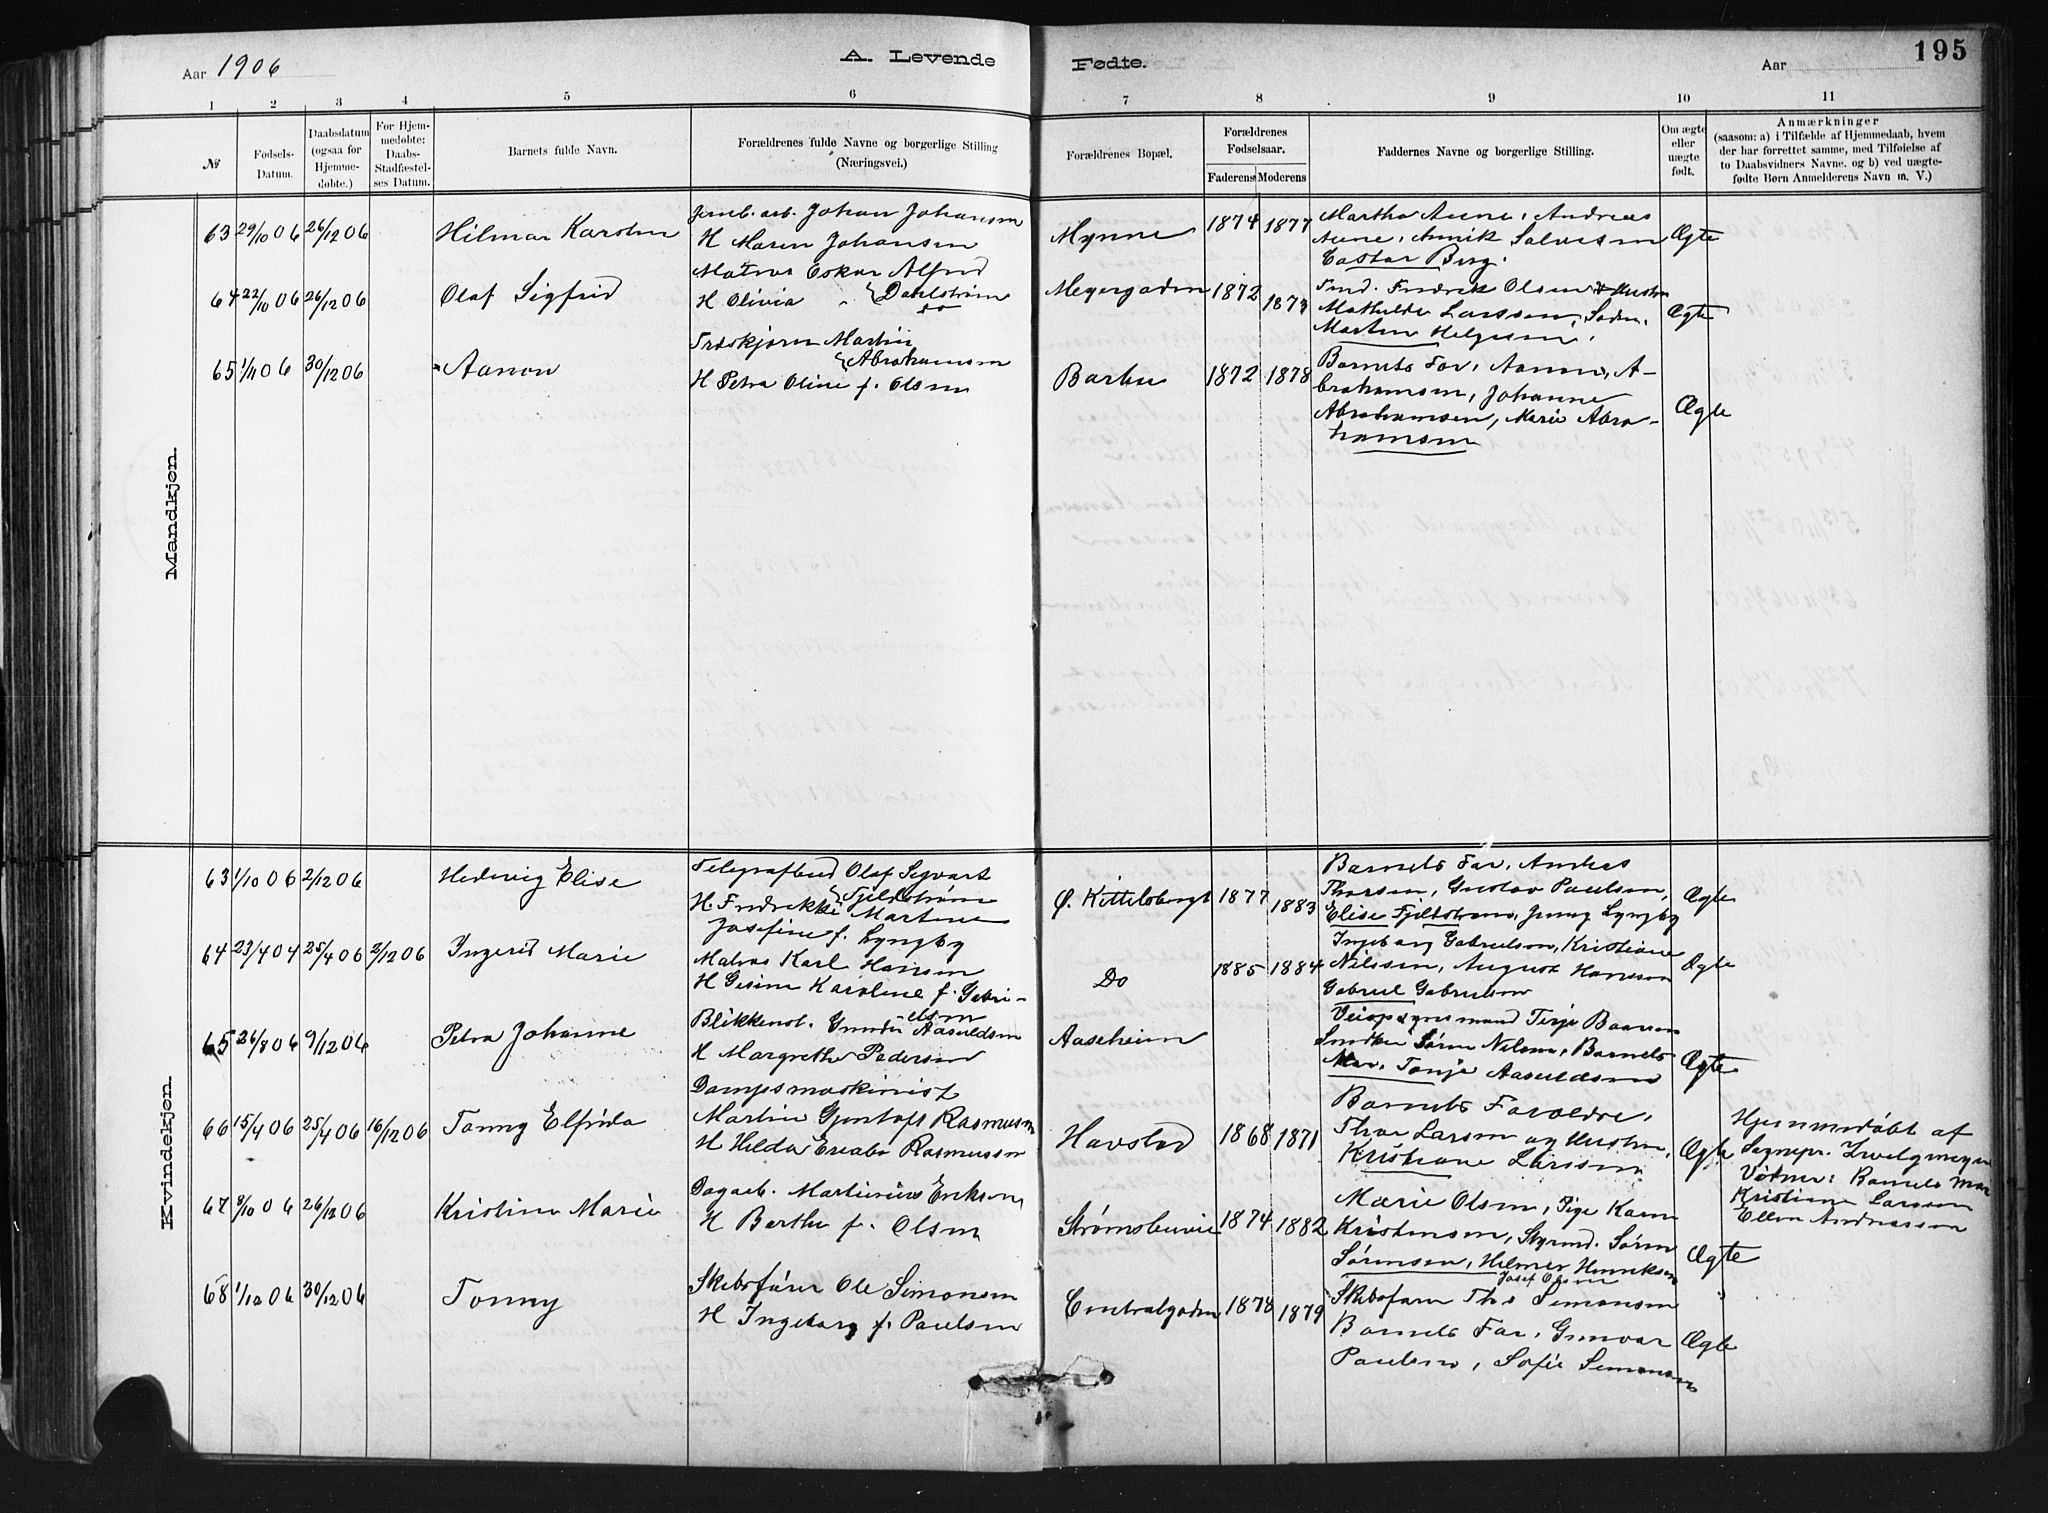 Aar 1906
A. Levende Fødte.
Aar
195
1 2 3 4 5 6 7 8 9 10 11
№
Fødsels-Datum.
Daabsdatum (ogsaa for Hjemme-døbte.)
For Hjem-medøbte: Daabs-Stadfæstel-ses Datum.
Barnets fulde Navn.
Forældrenes fulde Navne og borgerlige Stilling (Næringsvei.)
Forældrenes Bopæl.
Forældrenes Fødselsaar.
Faderens Moderens
Faddernes Navne og borgerlige Stilling.
Om ægte eller uægte født.
Anmærkninger
(saasom: a) i Tilfælde af Hjemmedaab, hvem
der har forrettet samme, med Tilføielse af
to Daabsvidners Navne. og b) ved uægte-
fødte Børn Anmelderens Navn m. V.)
Mandkjøn.
63 29/10 06 26/12 06 Hilmar Karsten
Jernb. arb. Johan Johansen
H Maren Johansen
Mynne 1874 1877
Martha Aune, Andreas
Aune, Salvesen
Berg.
Ægte
64 22/10 06 26/12 06 Olaf Sigfrid
Matros Oskar Alfred
H Olivia " Dahlstrøm
Meyergaden 1872 1873
Fredrik Olsen & Hustru
Mathilde Larssen,
Martin Helgesen.
Ægte
65 1/11 06 30/12 06 Aanon
Træskjærer Martin
Abrahamsen
H Petra Oline f. Olsen
Barbu 1872 1878
Barnets Far, Aanon A-
brahamsen, Johanne
Abrahamsen, Marie Abra-
hamsen
Ægte
Kvindekjøn.
63 1/10 06 2/12 06 Hedevig Elise
Telegrafbud Olaf Segvart
Fjeldstrøm
H. Fredrekke Martine
Josefine f. Lyngby
Ø. Kittelsbugt 1877 1883
Barnets Far, Anders
Thorsen, Gustav Paulsen,
Elise Fjeldstrøm, Jenny Lyngby
Ægte
64 23/4 04 25/4 06 2/12 06 Ingerid Marie
Matros Karl Hansen
H Gesine Karoline f. Gabri-
elsen
Do 1885 1884
Ingeborg Gabrielsen, Kristiane
Nilssen, August Hansson
Gabriel Gabrielsen
Ægte
65 26/8 06 9/12 06 Petra Johanne
Blikkensl. Gunder Aasuldsen
H Margrethe Pedersen
Aaseheim
Veiopsynsmand Terje Baarsen
Søren Nilsen, Barnets
Mor, Tonje Aasuldsen
Ægte
66 15/4 06 25/4 06 16/12 06 Tonny Elfrida
Dampsmaskinist
Martin Gjentoft Rasmussen
H Hilda Rasmussen
Havstad 1868 1871
Barnets Forældre,
Thor Larsen og Hustru,
Kristiane Larssen
Ægte
Hjemmedøbt af
Sognepr. Zwelgmeyer
Vidner: Barnets Mor
Kristiane Larssen
Ellen Andreassen
67 8/10 06 26/12 06 Kristine Marie
Dagarb. Martinius Eriksen
H Berthe f. Olsen
Strømsbuvei 1874 1882
Marie Olsen, Pige Karen
Kristensen, Styrmd. Søren
Sørensen, Helmer Henriksen
Josef Olsen
Ægte
68 1/10 06 30/12 06 Tonny
Skibsfører Ole Simonsen
H Ingeborg f. Paulsen
Centralgaden 1878 1879
Skibsfører Ths Semonsen
Barnets Far, Gunvor
Paulsen, Sofie Semonsen
Ægte